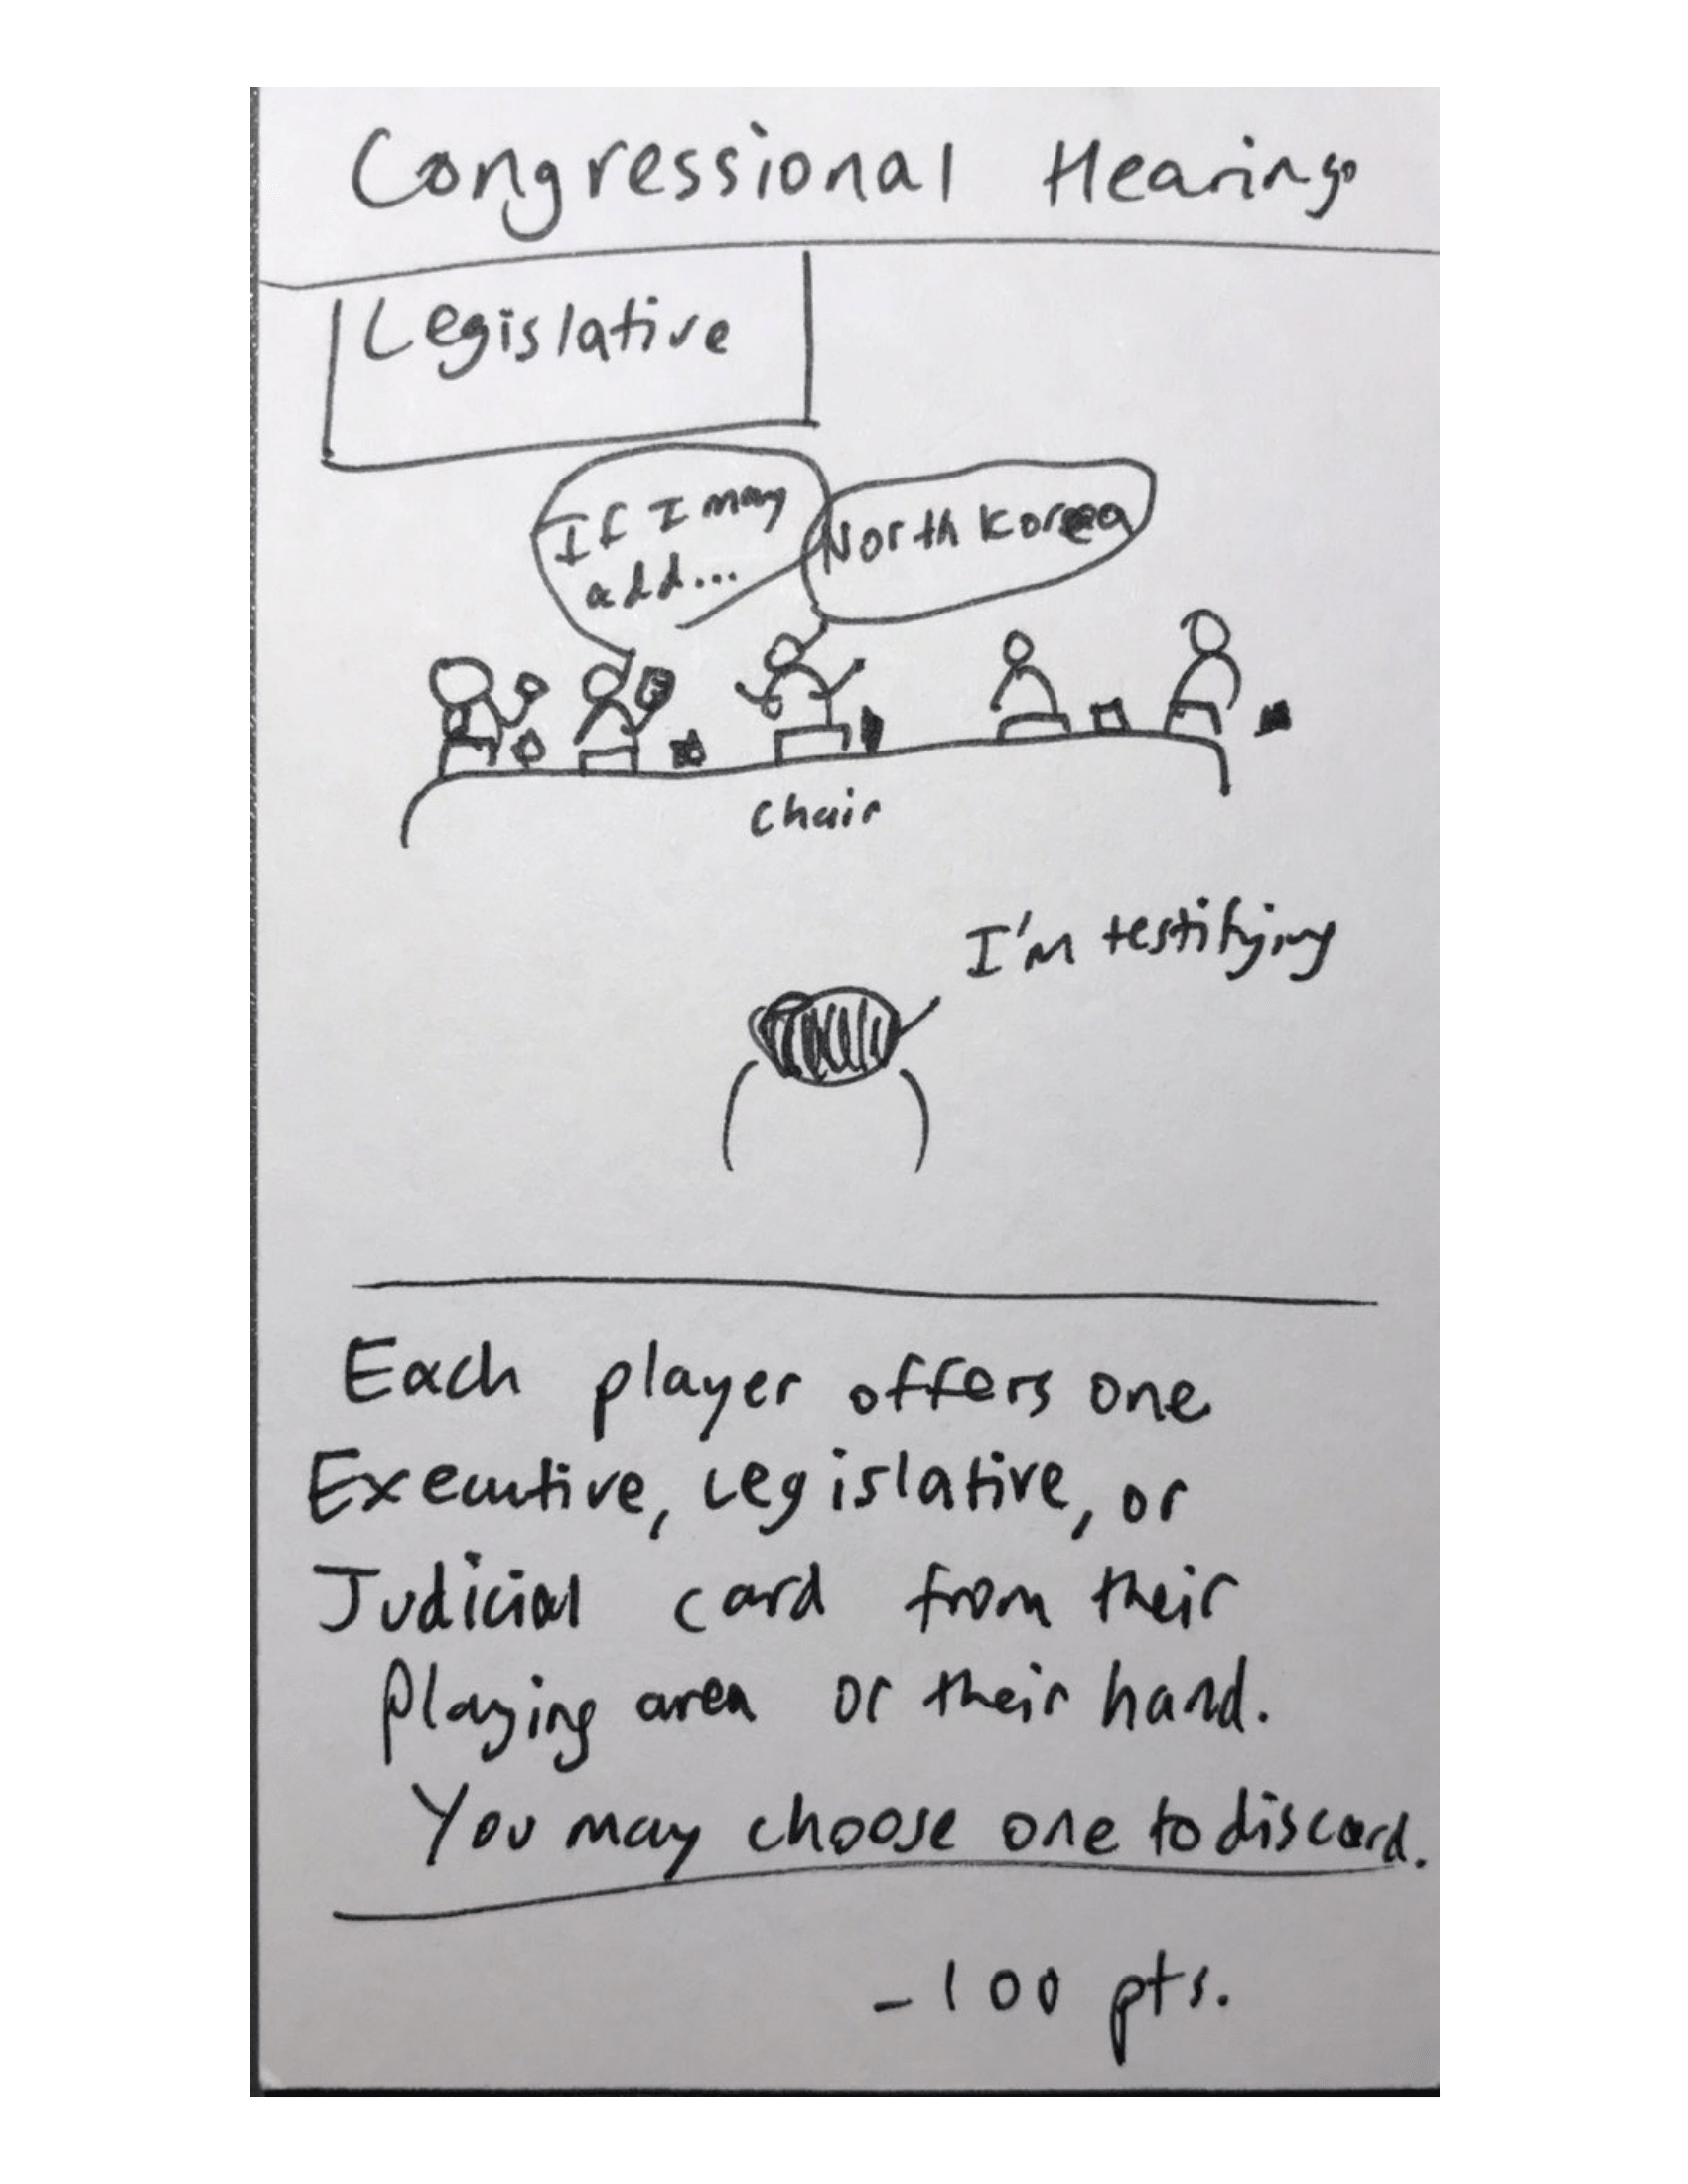 Congressional Hearing
Legislative
If I may
add...
North Korea
Chair
I'm testifying
Each player offers one
Executive, Legislative, or
Judicial card from their
Playing area or their hand.
You may choose one to discard.
-100 pts.